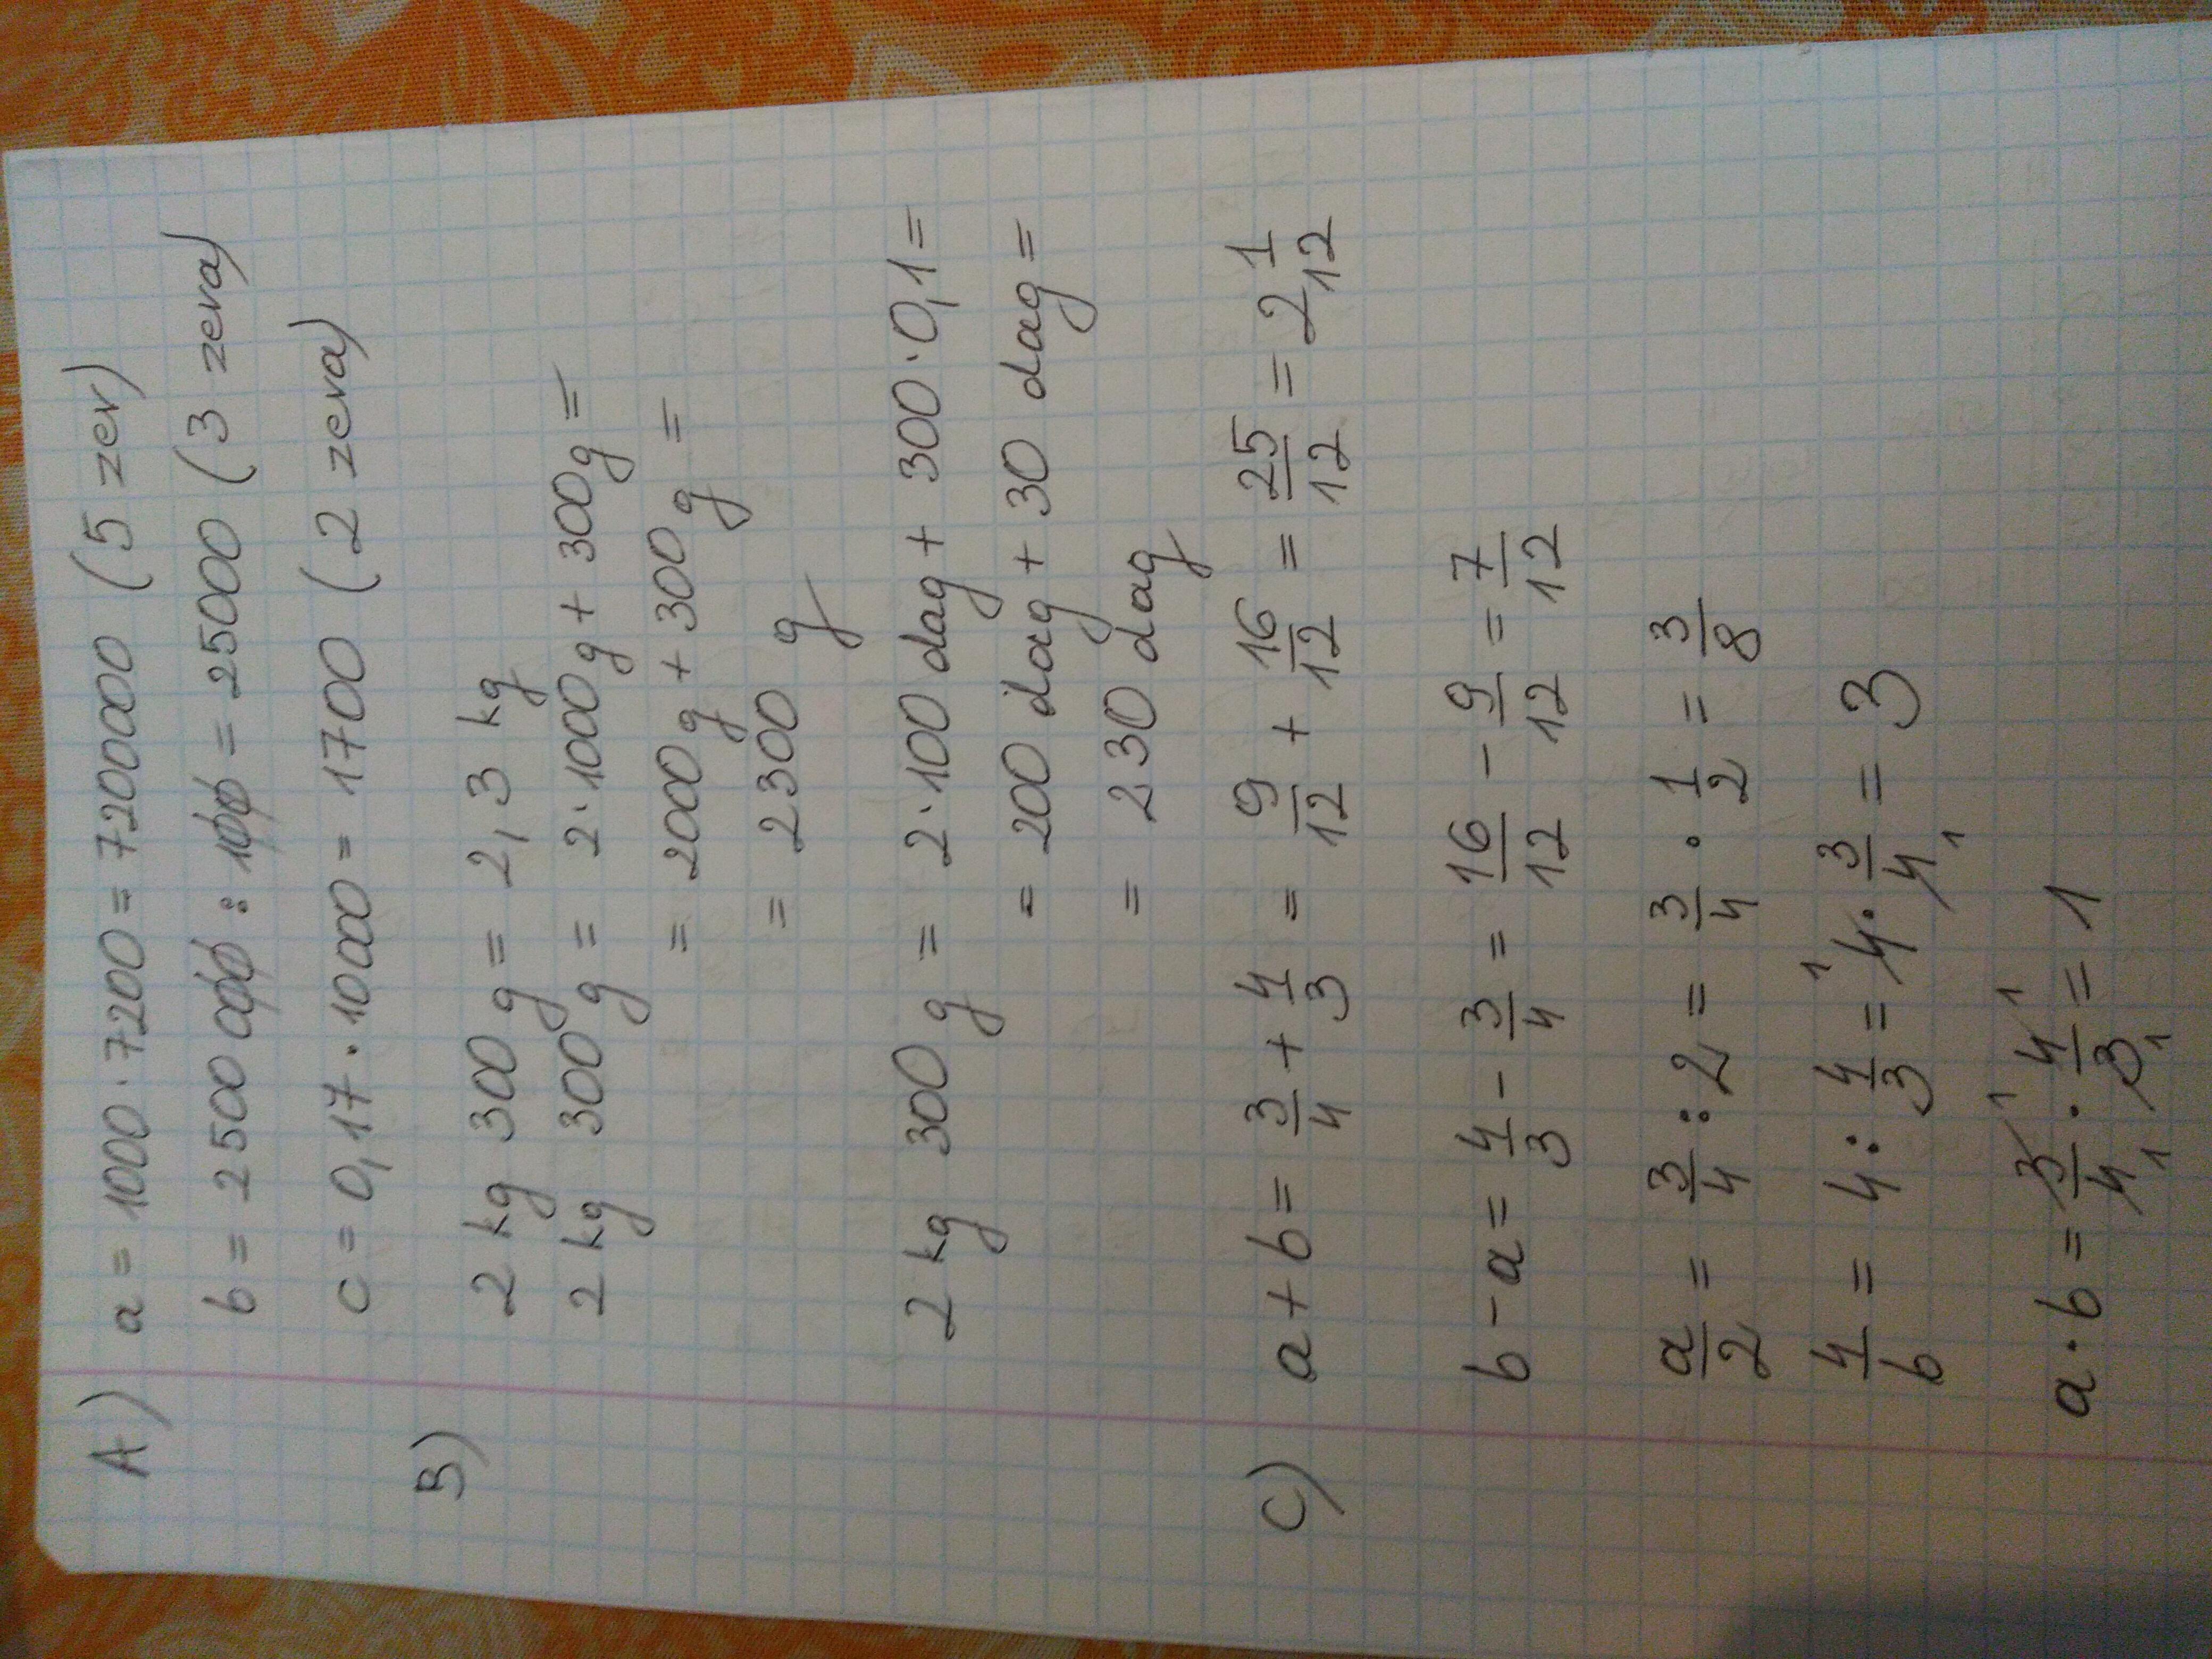 A) a = 1000 · 7200 = 7200000 (5 zer)
b = 2500000 : 100 = 25000 (3 zera)
c = 0,17 · 10000 = 1700 (2 zera)
B) 2 kg 300 g = 2,3 kg
2 kg 300 g = 2·1000 g + 300 g =
= 2000 g + 300 g =
= 2300 g
2 kg 300 g = 2·100 dag + 300·0,1 =
= 200 dag + 30 dag =
= 230 dag
C) a + b = 3/4 + 4/3 = 9/12 + 16/12 = 25/12 = 2 1/12
b - a = 4/3 - 3/4 = 16/12 - 9/12 = 7/12
a/2 = 3/4 : 2 = 3/4 · 1/2 = 3/8
4/b = 4 : 4/3 = 4 1 · 3/4 1 = 3
a · b = 3 1/4 1 · 4 1/3 1 = 1